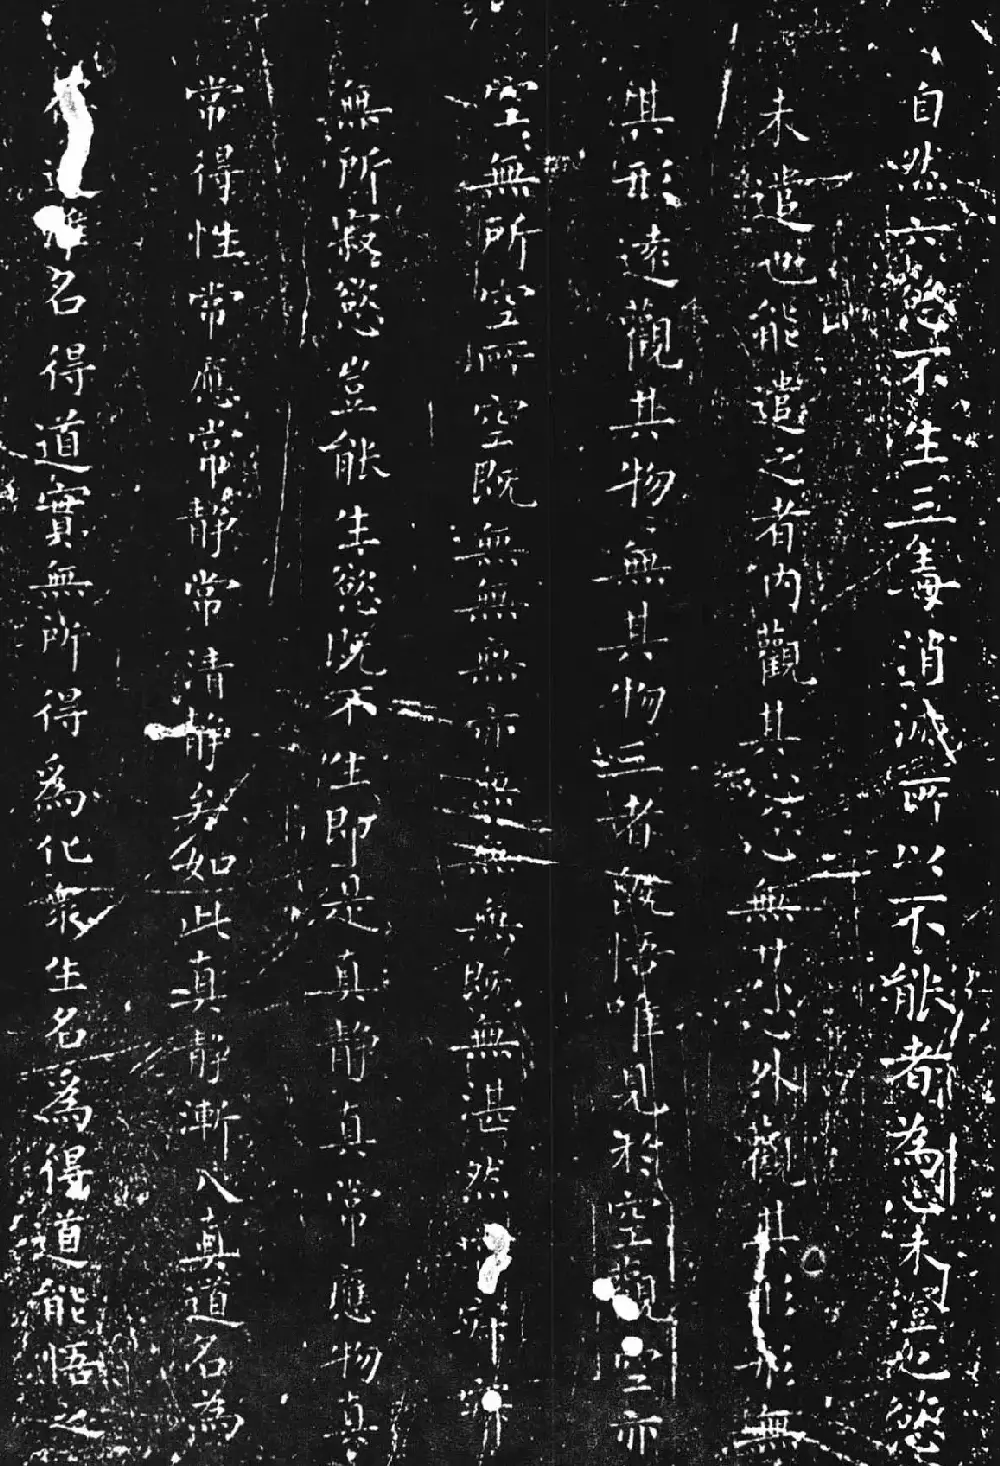 自然六慾不生三毒消滅所以不能者為心未澄也慾
未遣也能遣之者內觀其心心無其心外觀其形形無
其形遠觀其物〻無其物三者既悟唯見於空觀空亦
空〻無所空所空既無無無亦無無無既無湛然常寂寂
無所寂慾豈能生慾既不生即是真靜真常應物真
常得性常應常靜常清靜矣如此真靜漸入真道名為
道雖名得道實無所得為化眾生名為得道能悟之